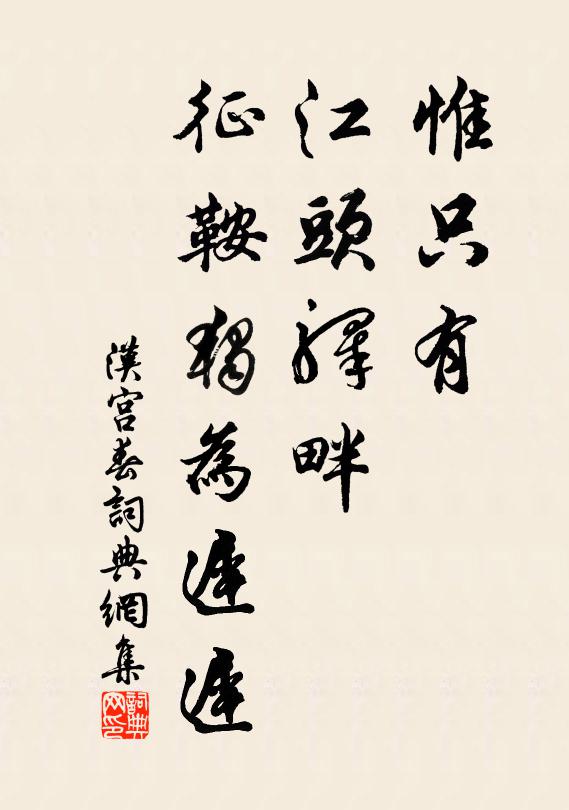 惟只有
江頭驛畔
征鞍獨為遲遲
漢宮春詞典網集
詞典
网印